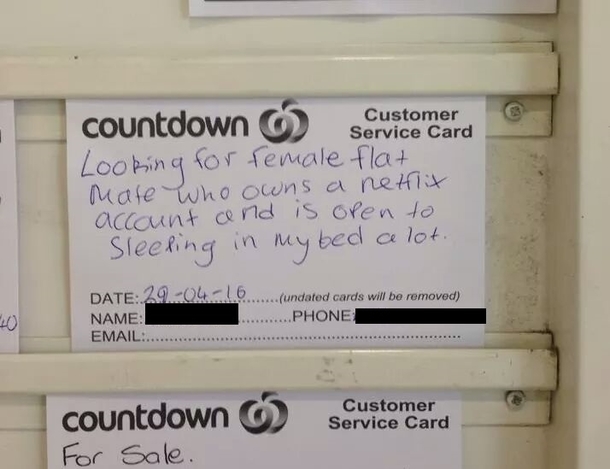 countdown Customer
Service Card
Looking for female flat
mate who owns a netflix
account and is open to
sleeping in my bed a lot.
DATE: 29-04-16 (undated cards will be removed)
NAME: PHONE:
EMAIL:
40
countdown Customer
Service Card
For Sale.